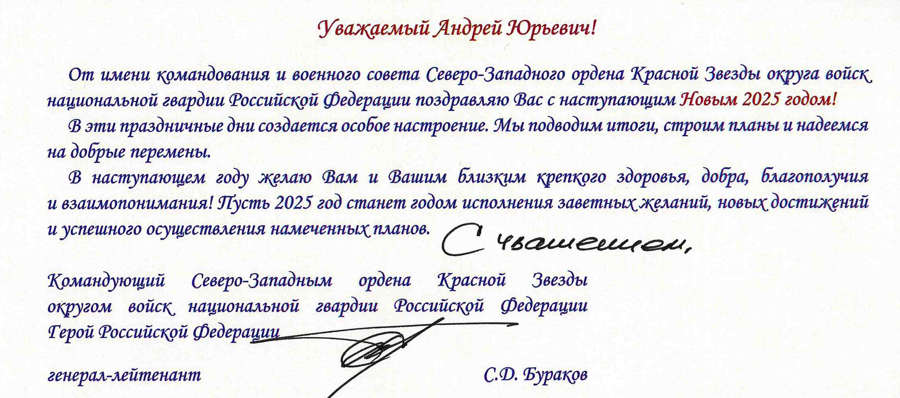 Уважаемый Андрей Юрьевич!
От имени командования и военного совета Северо-Западного ордена Красной Звезды округа войск
национальной гвардии Российской Федерации поздравляю Вас с наступающим Новым 2025 годом!
В эти праздничные дни создается особое настроение. Мы подводим итоги, строим планы и надеемся
на добрые перемены.
В наступающем году желаю Вам и Вашим близким крепкого здоровья, добра, благополучия
и взаимопонимания! Пусть 2025 год станет годом исполнения заветных желаний, новых достижений
и успешного осуществления намеченных планов.
С уважением,
Командующий Северо-Западным ордена Красной Звезды
округом войск национальной гвардии Российской Федерации
Герой Российской Федерации
генерал-лейтенант С.Д. Бураков